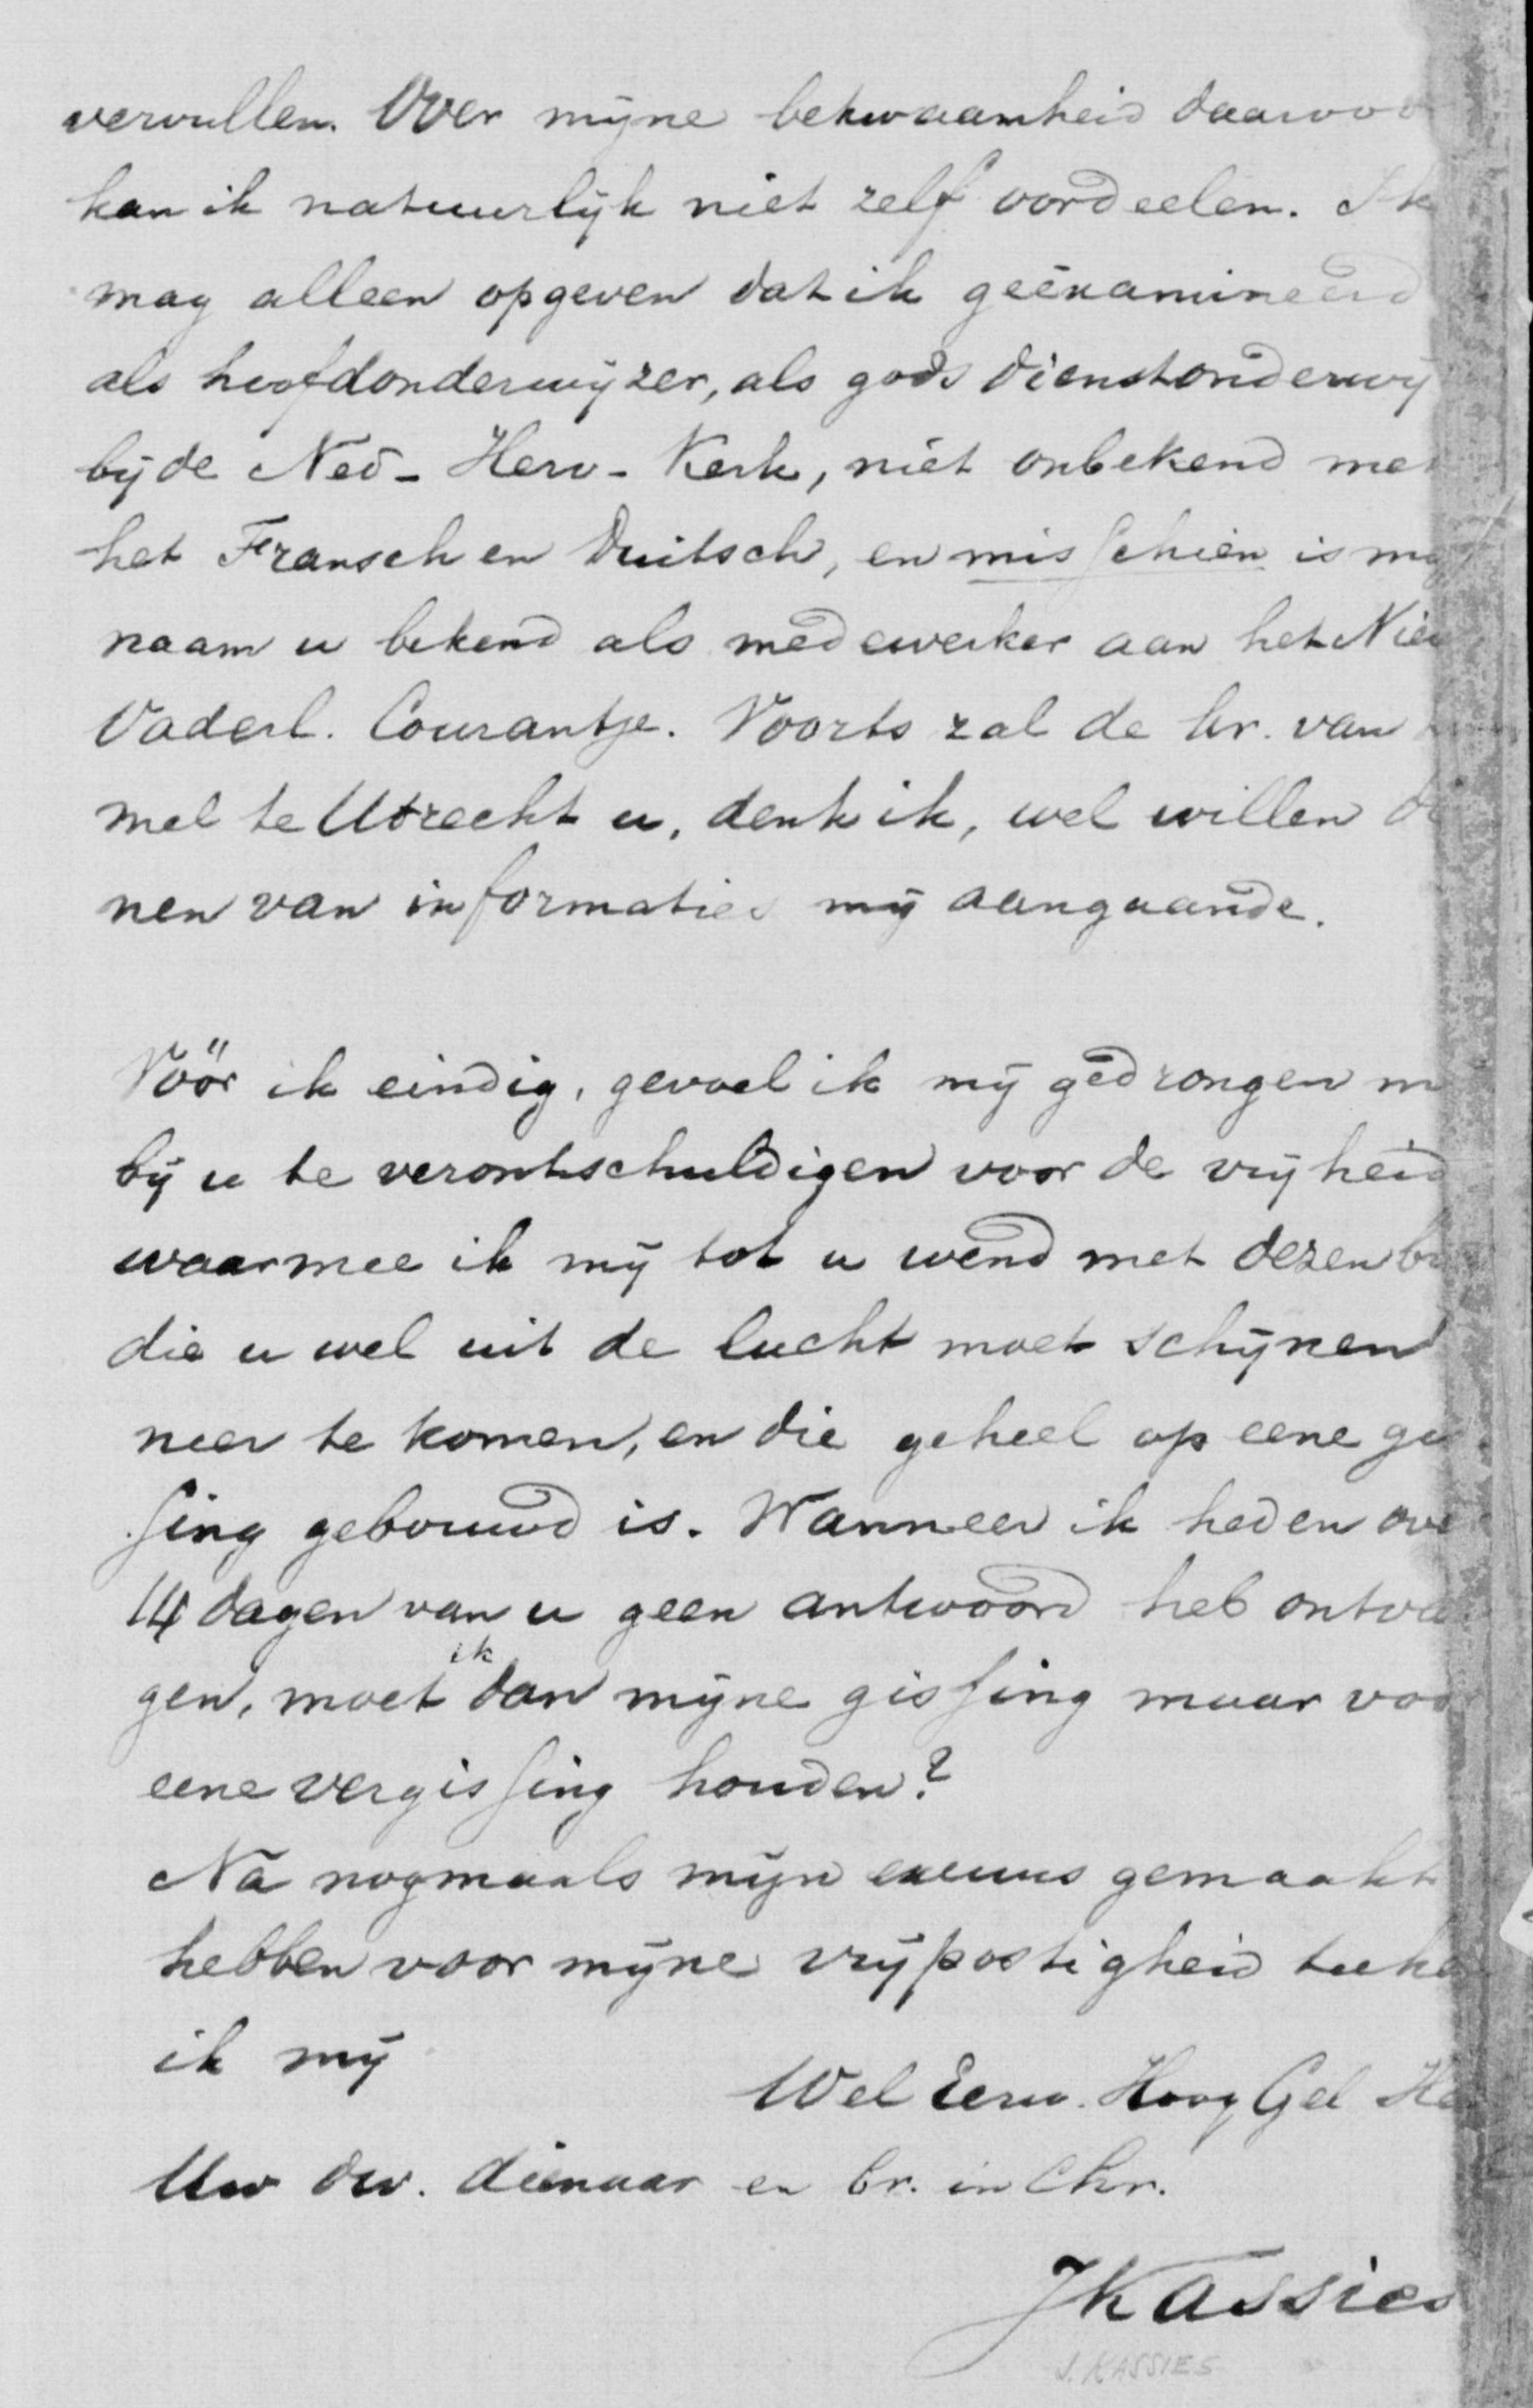 vervullen. Over mijne bekwaamheid daarvoo
kan ik natuurlijk niet zelf oordeelen. Ik
mag alleen opgeven dat ik geëxamineerd
als hoofdonderwijzer, als godsdienstonderwij
bij de Ned- Herv- Kerk, niet onbekend met
het Fransch en Duitsch, en misschien is mij
naam u bekend als medewerker aan het Nieu
Vaderl. Courantje. Voorts zal de hr. van
mel te Utrecht u, denk ik, wel willen di
nen van informaties mij aangaande.
Vóór ik eindig, gevoel ik mij gedrongen m
bij u te verontschuldigen voor de vrijheid
waarmee ik mij tot u wend met dezen br
die u wel uit de lucht moet schijnen
neer te komen, en die geheel op eene gis
sing gebouwd is. Wanneer ik heden over
14 dagen van u geen antwoord heb ontva
gen, moet ik dan mijne gissing maar voor
eene vergissing houden?
Na nogmaals mijn excuus gemaakt
hebben voor mijne vrijpostigheid teeke
ik mij
Wel Eerw. Hoog Gel He
Uw dw. dienaar en br. in Chr.
JKassies
J. KASSIES